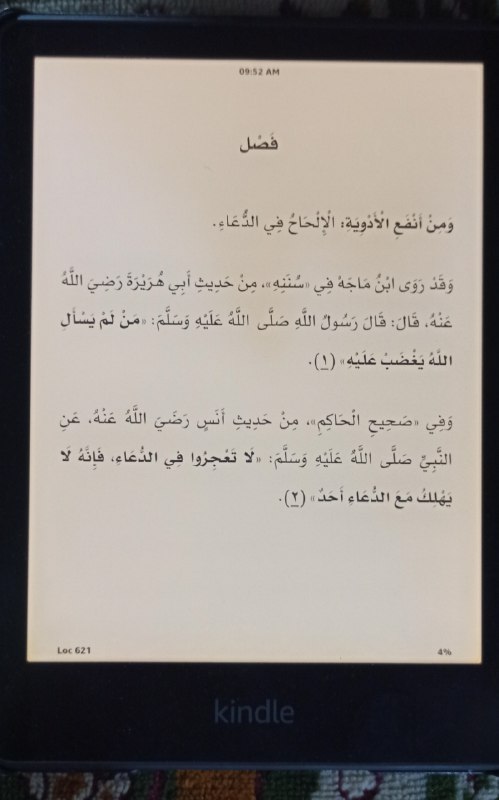 09:52 AM
فَصْل
وَمِنْ أَنْفَعِ الْأَدْوِيَةِ: الْإِلْحَاحُ فِي الدُّعَاءِ.
وَقَدْ رَوَى ابْنُ مَاجَهْ فِي «سُنَنِهِ»، مِنْ حَدِيثِ أَبِي هُرَيْرَةَ رَضِيَ اللَّهُ
عَنْهُ، قَالَ: قَالَ رَسُولُ اللَّهِ صَلَّى اللَّهُ عَلَيْهِ وَسَلَّمَ: «مَنْ لَمْ يَسْأَلِ
اللَّهَ يَغْضَبْ عَلَيْهِ» (١).
وَفِي «صَحِيحِ الْحَاكِمِ»، مِنْ حَدِيثِ أَنَسٍ رَضَيَ اللَّهُ عَنْهُ، عَنِ
النَّبِيِّ صَلَّى اللَّهُ عَلَيْهِ وَسَلَّمَ: «لَا تَعْجِزُوا فِي الدُّعَاءِ، فَإِنَّهُ لَا
يَهْلِكُ مَعَ الدُّعَاءِ أَحَدٌ» (٢).
Loc 621
4%
kindle